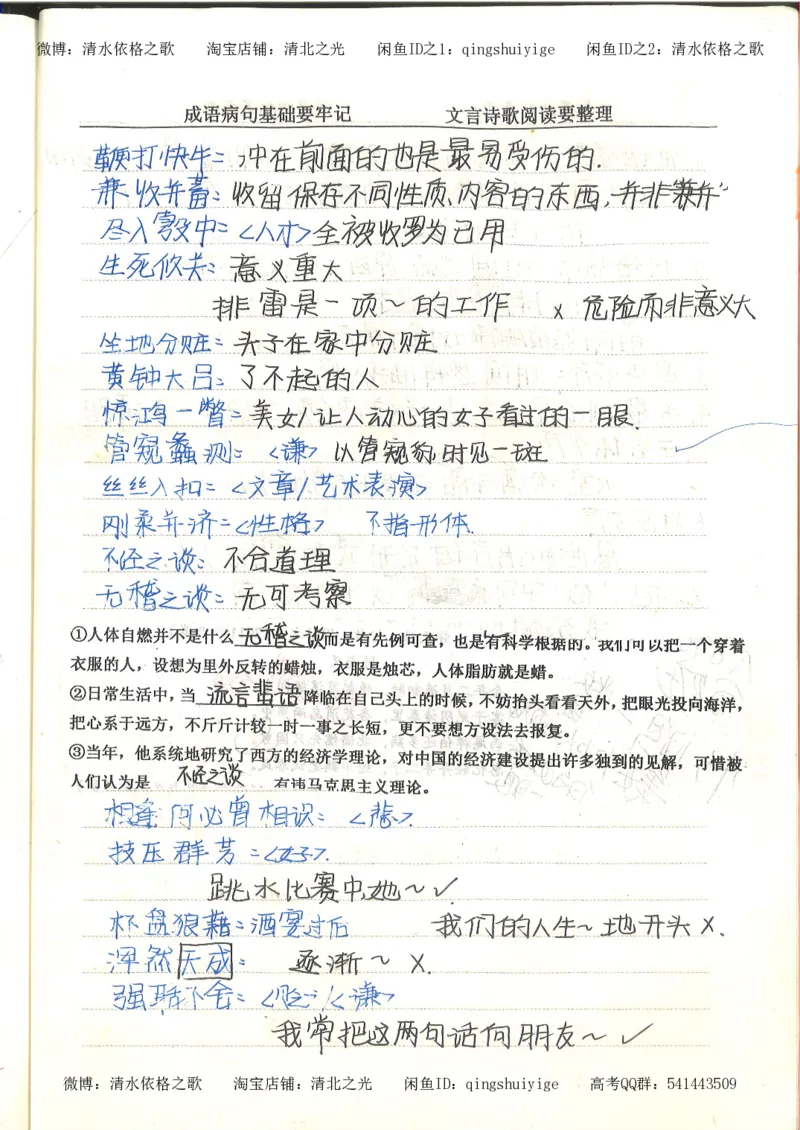 微博：清水依格之歌 淘宝店铺：清北之光 闲鱼ID之1：qingshuiyige 闲鱼ID之2：清水依格之歌
成语病句基础要牢记 文言诗歌阅读要整理
鞭打快牛：冲在前面的也是最易受伤的.
兼收并蓄：收留保存不同性质、内容的东西，并非“兼并”
尽入彀中：<人才>全被收罗为己用
生死攸关：意义重大
排雷是一项~的工作 x 危险而非意义大
坐地分赃：头子在家中分赃
黄钟大吕：了不起的人
惊鸿一瞥：美女/让人动心的女子看过的一眼.
管窥蠡测：<谦> 以管窥豹,时见一斑
丝丝入扣：<文章/艺术表演>
刚柔并济：<性格> 不指形体.
不经之谈：不合道理
无稽之谈：无可考察
①人体自燃并不是什么 无稽之谈 而是有先例可查，也是有科学根据的。我们可以把一个穿着
衣服的人，设想为里外反转的蜡烛，衣服是烛芯，人体脂肪就是蜡。
②日常生活中，当 流言蜚语 降临在自己头上的时候，不妨抬头看看天外，把眼光投向海洋，
把心系于远方，不斤斤计较一时一事之长短，更不要想方设法去报复。
③当年，他系统地研究了西方的经济学理论，对中国的经济建设提出许多独到的见解，可惜被
人们认为是 不经之谈 有违马克思主义理论。
相逢何必曾相识：<悲>.
技压群芳：<女子>.
跳水比赛中,她~✓
杯盘狼藉：酒宴过后 我们的人生~地开头 X.
浑然天成： 逐渐~ X.
强聒不舍：<贬>/<谦>
我常把这两句话向朋友~ ✓
微博：清水依格之歌 淘宝店铺：清北之光 闲鱼ID：qingshuiyige 高考QQ群：541443509